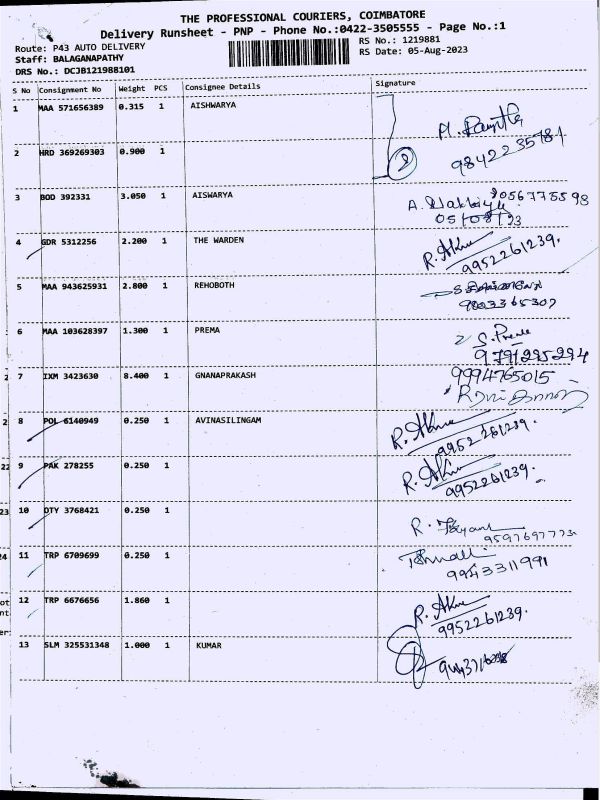 THE PROFESSIONAL COURIERS, COIMBATORE
Delivery Runsheet - PNP - Phone No.:0422-3505555 - Page No.:1
Route: P43 AUTO DELIVERY
RS No.: 1219881
Staff: BALAGANAPATHY
RS Date: 05-Aug-2023
DRS No.: DCJB121988101
S No Consignment No Weight PCS Consignee Details Signature
1 MAA 571656389 0.315 1 AISHWARYA
2 HRD 369269303 0.900 1 9842235781
3 BOD 392331 3.050 1 AISWARYA 8056775598
05/08/23
4 GDR 5312256 2.200 1 THE WARDEN 9952261239.
5 MAA 943625931 2.800 1 REHOBOTH
9803365307
6 MAA 103628397 1.300 1 PREMA S. Preme
9791295294
7 IXM 3423630 8.400 1 GNANAPRAKASH 9994765015
8 POL 6140949 0.250 1 AVINASILINGAM 9952261239.
9 PAK 278255 0.250 1 9952261239.
10 OTY 3768421 0.250 1
11 TRP 6709699 0.250 1
9943311991
12 TRP 6676656 1.860 1 9952261239.
13 SLM 325531348 1.000 1 KUMAR